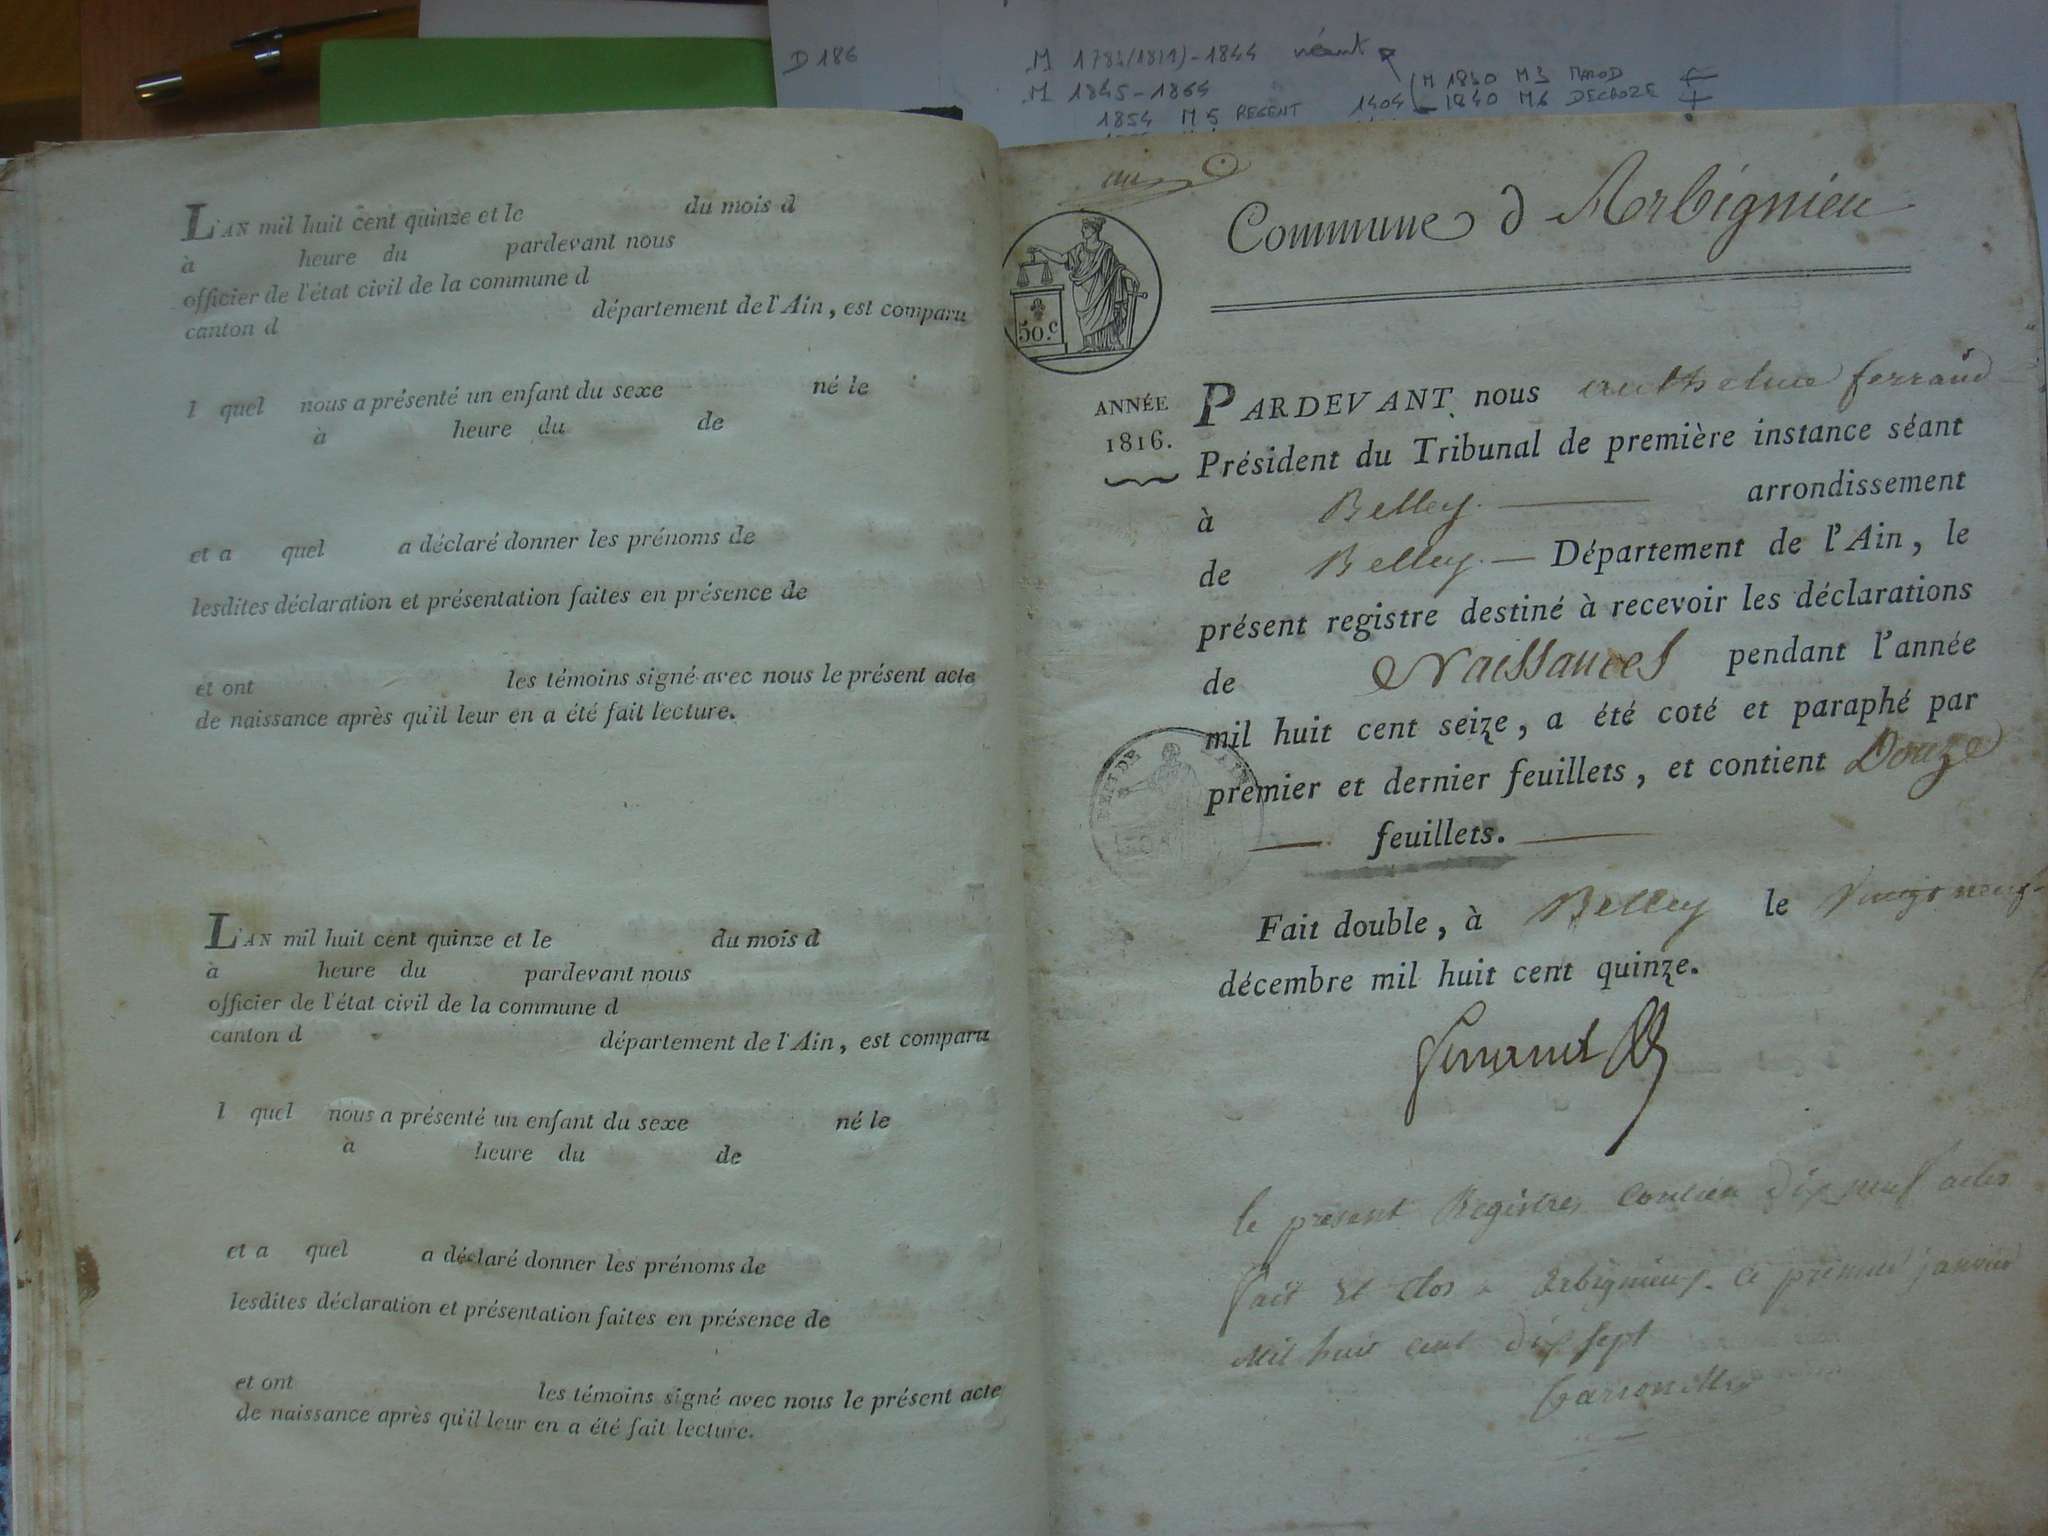 D 186
M 1784(1811)-1844 néant
M 1845-1864
1854 M 5 REGENT
M 1840 M3 MAROD
1840 M6 DECROZE
L'AN mil huit cent quinze et le du mois d
à heure du pardevant nous
officier de l'état civil de la commune d
canton d département de l'Ain, est comparu
l quel nous a présenté un enfant du sexe né le
à heure du de
et a quel a déclaré donner les prénoms de
lesdites déclaration et présentation faites en présence de
et ont les témoins signé avec nous le présent acte
de naissance après qu'il leur en a été fait lecture.
L'AN mil huit cent quinze et le du mois d
à heure du pardevant nous
officier de l'état civil de la commune d
canton d département de l'Ain, est comparu
l quel nous a présenté un enfant du sexe né le
à heure du de
et a quel a déclaré donner les prénoms de
lesdites déclaration et présentation faites en présence de
et ont les témoins signé avec nous le présent acte
de naissance après qu'il leur en a été fait lecture.
Commune d Arbignieu
50.c
ANNÉE
1816.
PARDEVANT nous anthelme ferrand
Président du Tribunal de première instance séant
à Belley arrondissement
de Belley Département de l'Ain, le
présent registre destiné à recevoir les déclarations
de Naissances pendant l'année
mil huit cent seize, a été coté et paraphé par
premier et dernier feuillets, et contient Douze
feuillets.
Fait double, à Belley le vingt neuf
décembre mil huit cent quinze.
le present Registre contien dix neuf actes
fait et clos a Arbignieux ce premier janvier
mil huit cent dix sept